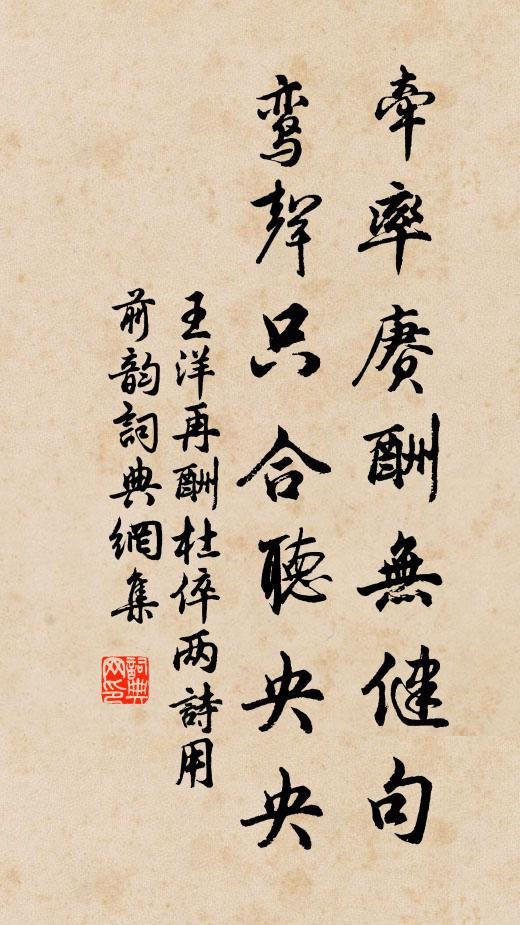 牽率赓酬無健句
鸾聲只合聽央央
王洋再酬杜倅两詩用
前韵詞典網集
詞典网印